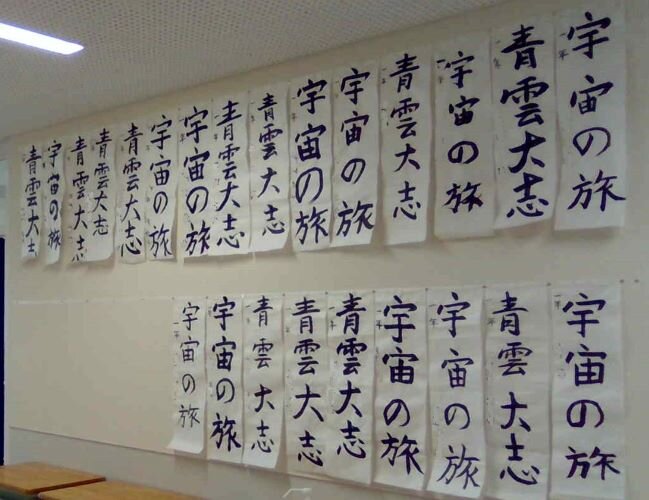 宇宙の旅
青雲大志
宇宙の旅
青雲大志
宇宙の旅
宇宙の旅
青雲大志
青雲大志
宇宙の旅
宇宙の旅
青雲大志
青雲大志
青雲大志
宇宙の旅
青雲大志
宇宙の旅
青雲大志
宇宙の旅
宇宙の旅
青雲大志
青雲大志
青雲大志
宇宙の旅
宇宙の旅